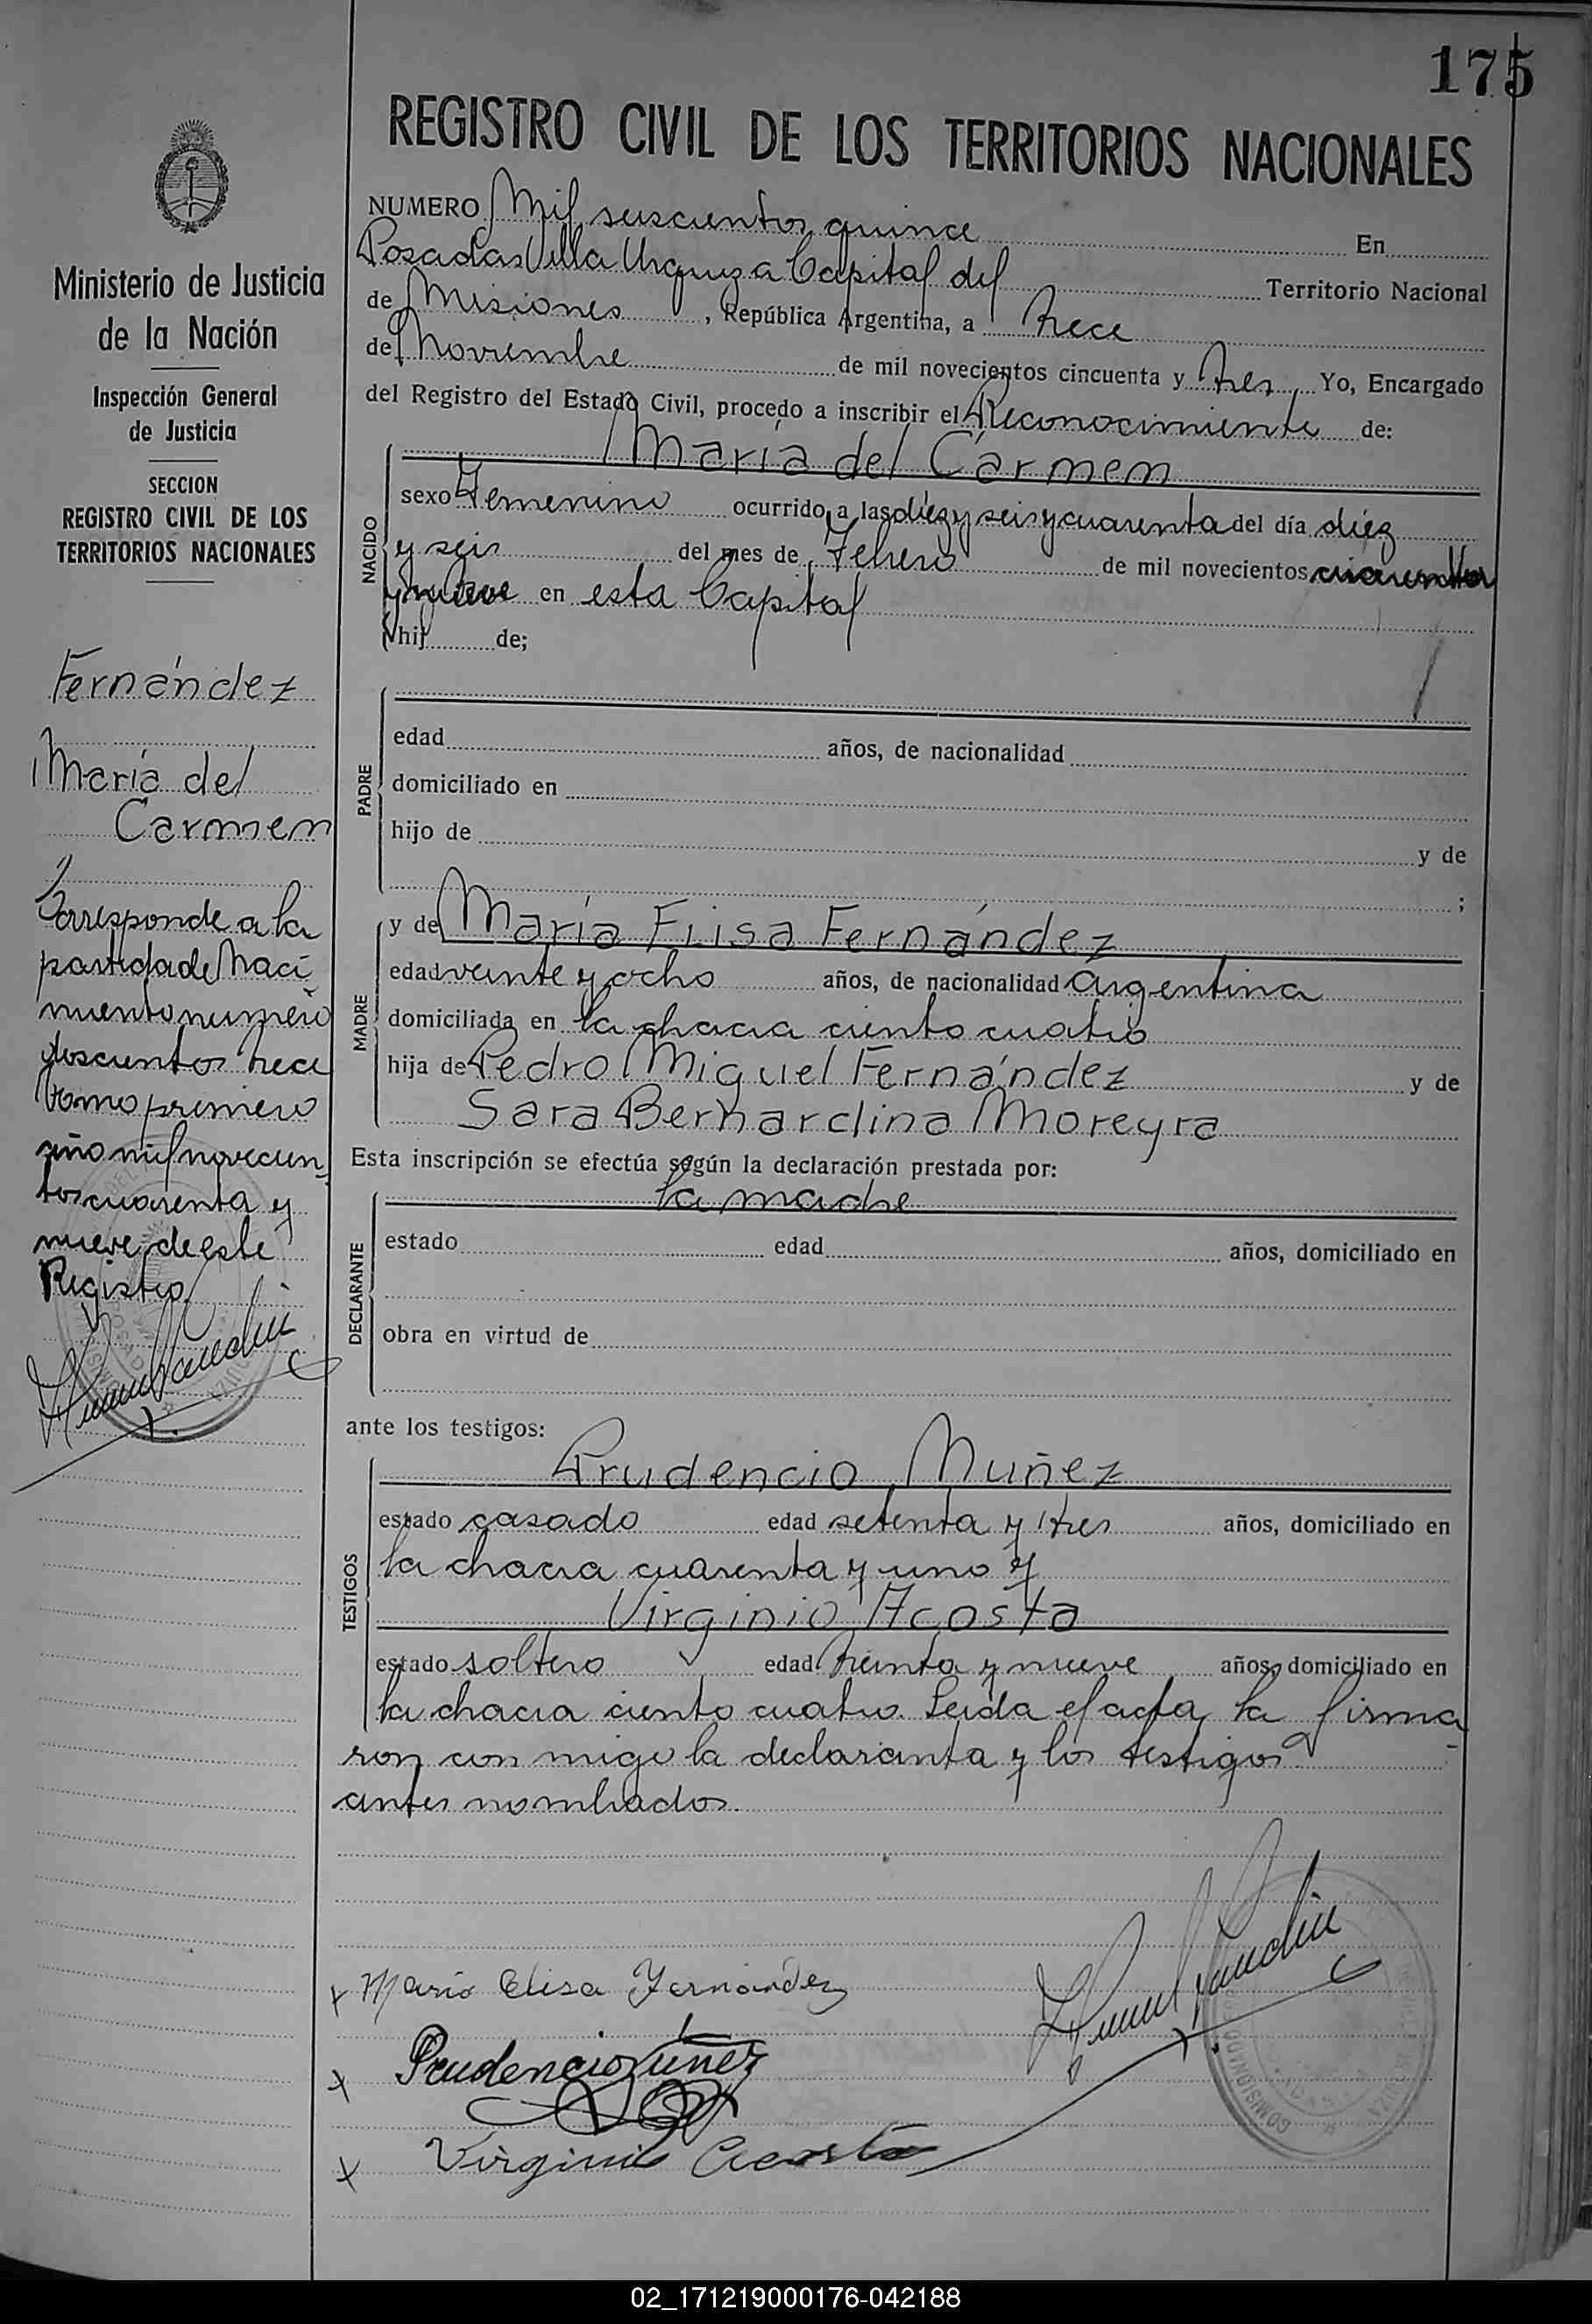 175
REGISTRO CIVIL DE LOS TERRITORIOS NACIONALES
NUMERO Mil seiscientos quince En
Posadas Villa Urquiza Capital del Territorio Nacional
de Misiones, República Argentina, a trece
de Noviembre de mil novecientos cincuenta y tres, Yo, Encargado
del Registro del Estado Civil, procedo a inscribir el Reconocimiento de:
NACIDO
María del Cármen
sexo Femenino ocurrido a las diez y seis y cuarenta del día diez
y seis del mes de Febrero de mil novecientos cuarenta
y nueve en esta Capital
hij de;
PADRE
edad años, de nacionalidad
domiciliado en
hijo de y de
;
MADRE
y de María Elisa Fernández
edad veinte y ocho años, de nacionalidad argentina
domiciliada en la chacra ciento cuatro
hija de Pedro Miguel Fernández y de
Sara Bernardina Moreyra
Esta inscripción se efectúa según la declaración prestada por:
DECLARANTE
la madre
estado edad años, domiciliado en
obra en virtud de
ante los testigos:
TESTIGOS
Prudencio Muñez
estado casado edad setenta y tres años, domiciliado en
la chacra cuarenta y uno y
Virginio Acosta
estado soltero edad treinta y nueve años, domiciliado en
la chacra ciento cuatro. Leida el acta, la firma
ron con migo la declaranta y los testigos
antes nombrados.
x María Elisa Fernández
x Prudencio Núñez
x Virginio Acosta
Ministerio de Justicia
de la Nación
Inspección General
de Justicia
SECCION
REGISTRO CIVIL DE LOS
TERRITORIOS NACIONALES
Fernández
María del
Carmen
Corresponde a la
partida de Naci
miento numero
doscientos trece
tomo primero
año mil novecien
tos cuarenta y
nueve, de este
Registro.
02_171219000176-042188